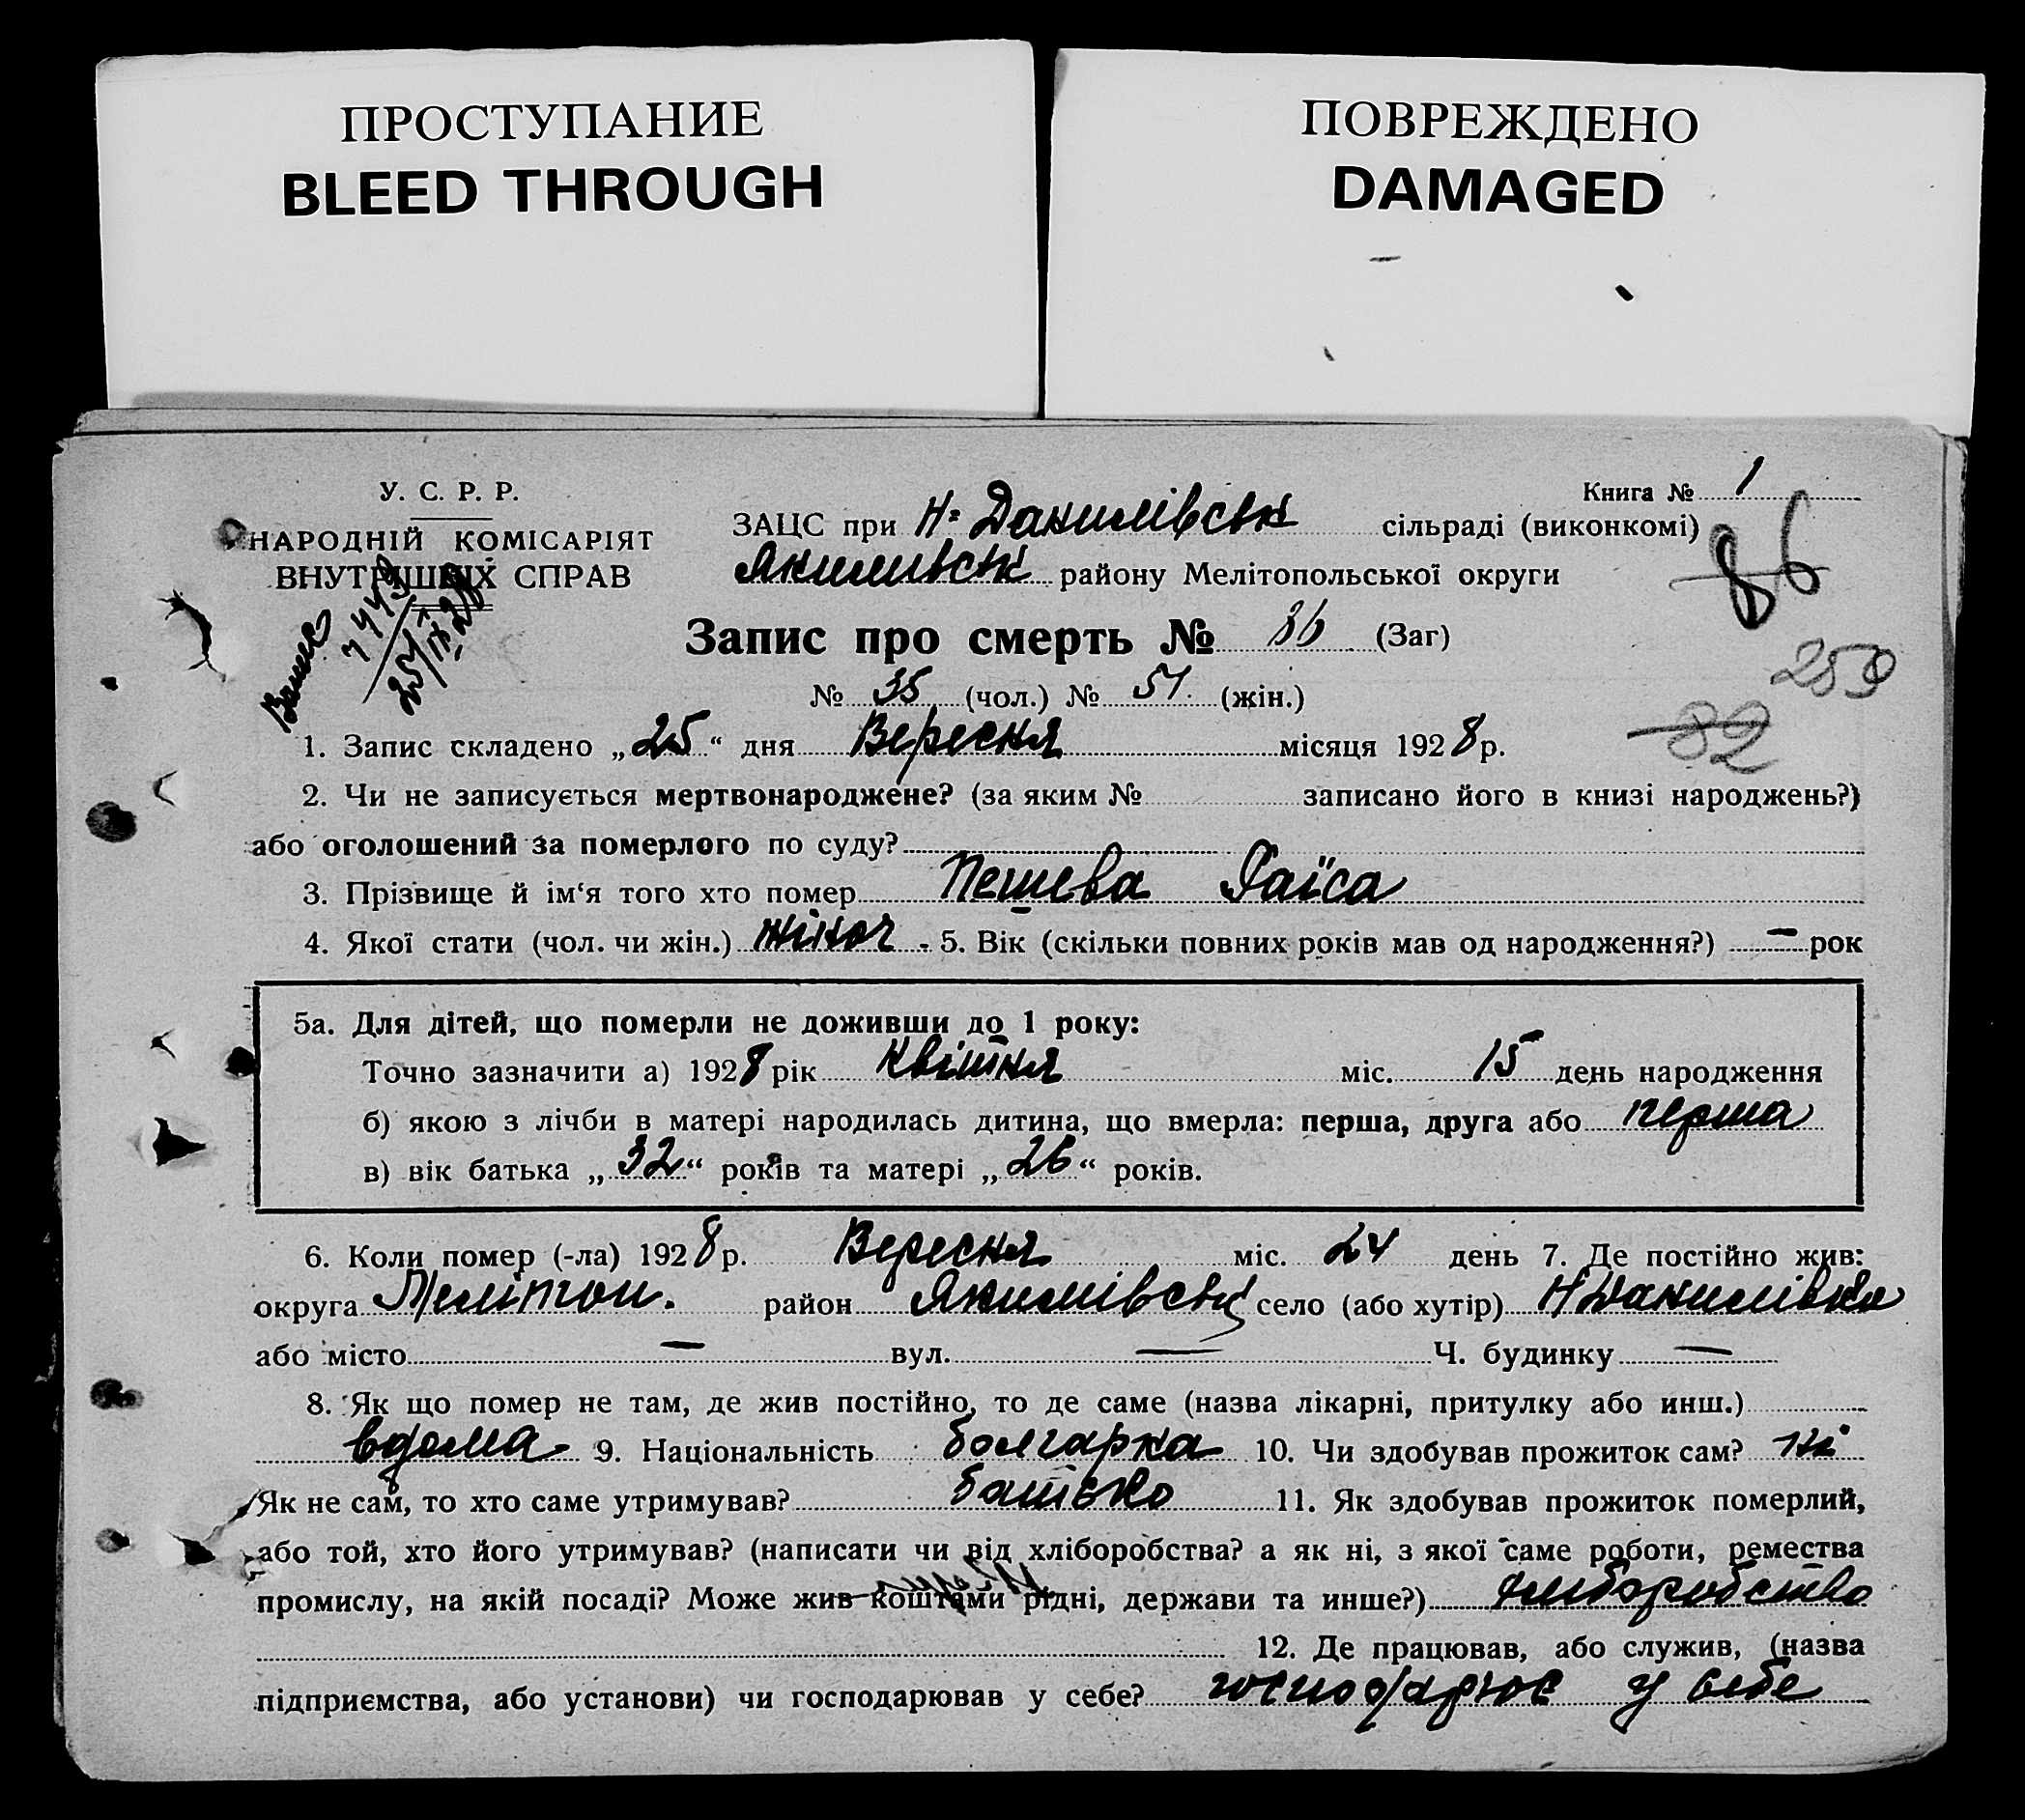 ПРОСТУПАНИЕ
BLEED THROUGH
ПОВРЕЖДЕНО
DAMAGED
У. С. Р. Р.
НАРОДНІЙ КОМІСАРІЯТ
ВНУТРІШНІХ СПРАВ
Книга № 1
ЗАЦС при Н-Данилівськ сільраді (виконкомі)
Якимівськ району Мелітопольської округи
86
Запис про смерть № 86 (Заг)
259
№ 35 (чол.) № 51 (жін.)
82
1. Запис складено „25“ дня Вересня місяця 1928 р.
2. Чи не записується мертвонароджене? (за яким № записано його в книзі народжень?)
або оголошений за померлого по суду?
3. Прізвище й ім‘я того хто помер Пешева Раїса
4. Якої стати (чол. чи жін.) жіноч. 5. Вік (скільки повних років мав од народження?) — рок
5а. Для дітей, що померли не доживши до 1 року:
Точно зазначити а) 1928 рік Квітня міс. 15 день народження
б) якою з лічби в матері народилась дитина, що вмерла: перша, друга або перша
в) вік батька „32“ років та матері „26“ років.
6. Коли помер (-ла) 1928 р. Вересня міс. 24 день 7. Де постійно жив:
округа Мелітоп. район Якимівськ село (або хутір) Н Данилівка
або місто — вул. — Ч. будинку —
8. Як що помер не там, де жив постійно, то де саме (назва лікарні, притулку або инш.)
вдома 9. Національність болгарка 10. Чи здобував прожиток сам? ні
Як не сам, то хто саме утримував? батько 11. Як здобував прожиток померлий,
або той, хто його утримував? (написати чи від хліборобства? а як ні, з якої саме роботи, ремества
промислу, на якій посаді? Може жив коштами рідні, держави та инше?) хліборобство
12. Де працював, або служив, (назва
підприємства, або установи) чи господарював у себе? господарює у себе